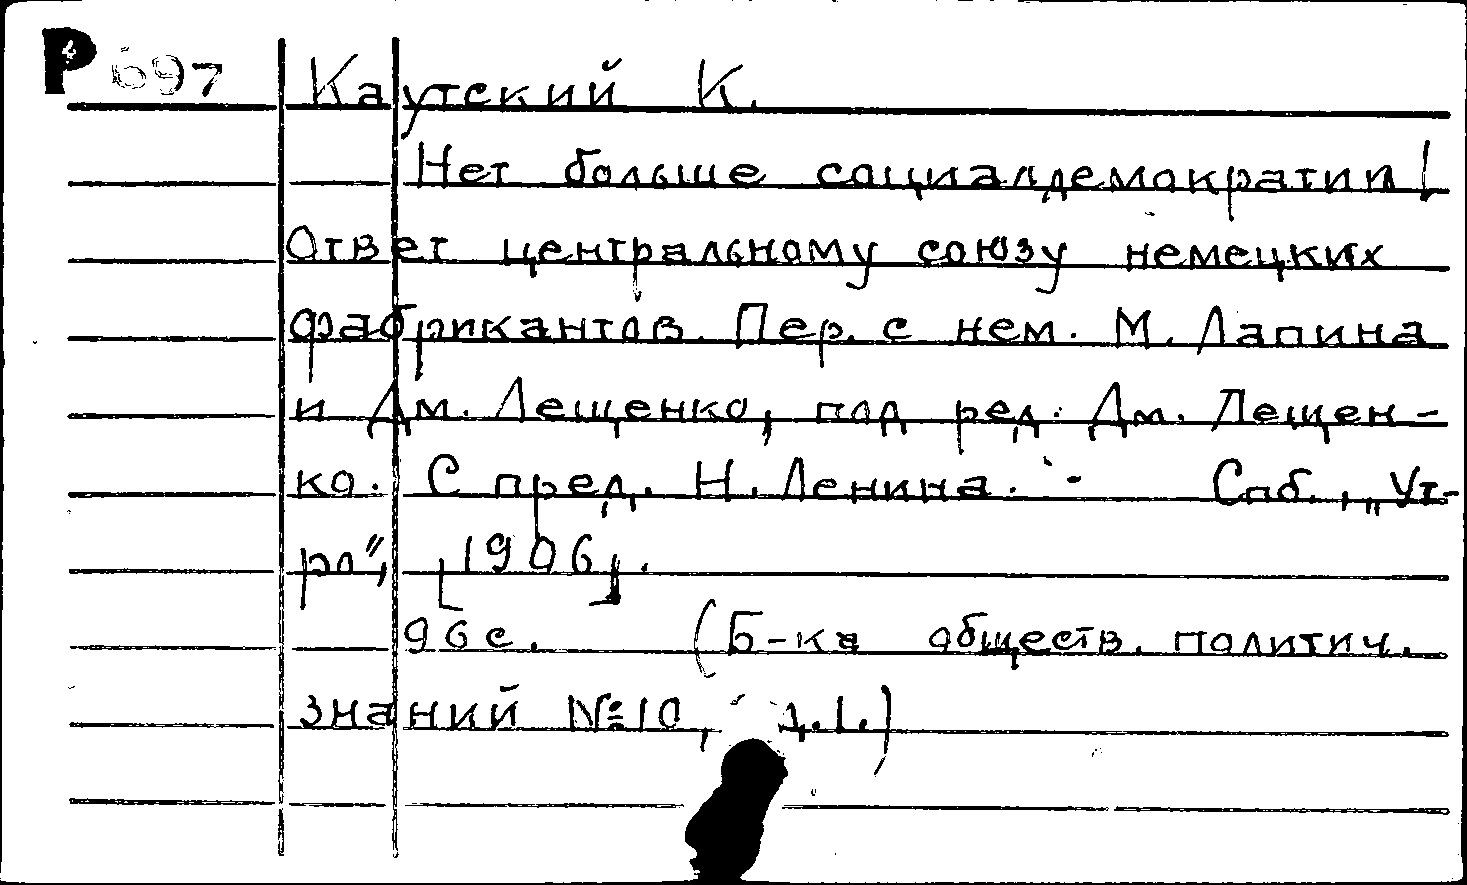 Р 697 Каутский К.
Нет больше социалдемократии!
Ответ центральному союзу немецких
фабрикантов. Пер. с нем. М. Лапина
и Дм. Лещенко, под ред. Дм. Лещен-
ко. С пред. Н. Ленина. - Спб., „Ут-
ро", [1906].
96 с. (Б-ка обществ. политич.
знаний №10,